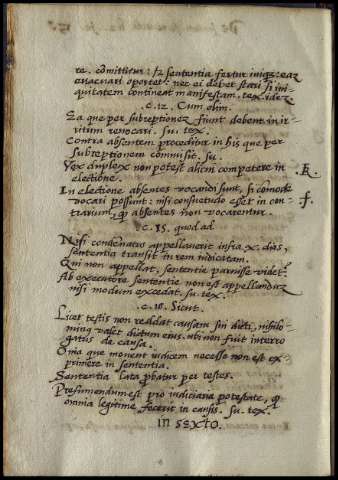 re. committitur: sz sententia fertur iniqz: eaz
euacuari oportet: nec ei debet stari si ini-
quitatem contineat manifestam. tex. ide₃
c. 12. Cum olim.
Ea que per subreptionez fiunt debent in ir-
ritum reuocari. su. tex.
Contra absentem proceditur in his que per
subreptionem commisit. su.
Vox duplex non potest alicui competere in
electione.
R.
In electione absentes vocandi sunt, si cōmode
vocari possunt: nisi consuetudo esset in con-
f.
trarium, ꝙ absentes non vocarentur.
c. 15. quod ad
Nisi condemnatus appellauerit infra x. dies,
sententia transit in rem iudicatam.
Qui non appellat, sententie paruisse videt.
Ab executore sententie non est appellanduz
nisi modum excedat. su. tex.
c. 16. Sicut.
Licet testis non reddat causam sui dicti, nihilo-
minus valet dictum eius. ubi non fuit interro
gatus de causa.
Omnia que mouent iudicem necesse non est ex-
primere in sententia.
Sententia lata probatur per testes.
Presumendum est pro iudiciaria potestate, ꝙ
omnia legitime fecerit in causis. su. tex.
IN SEXTO.